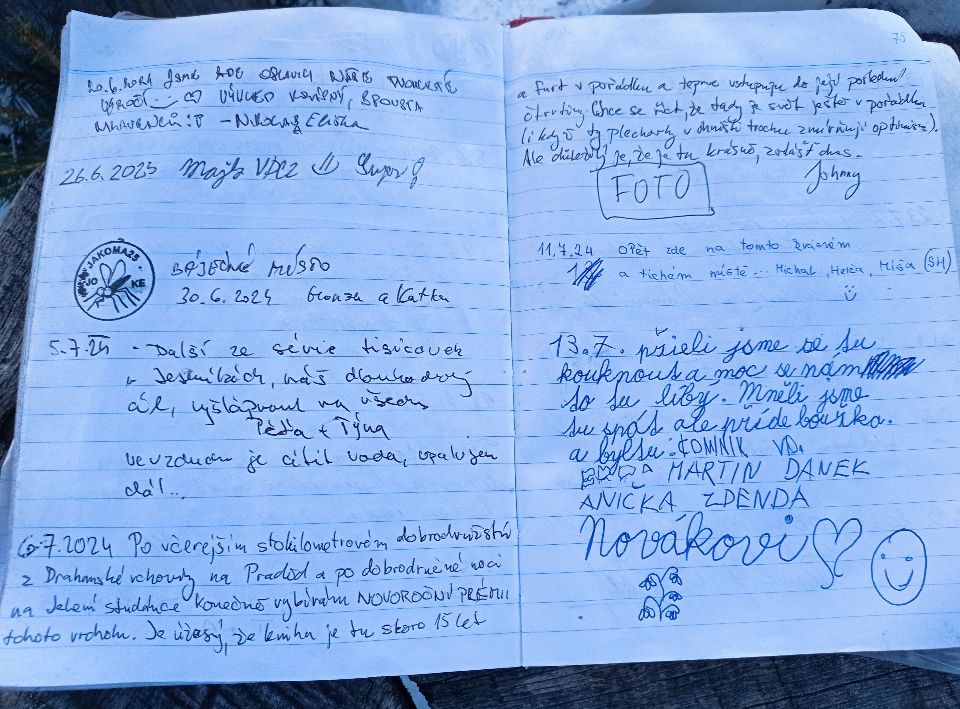 20.6.2024 JSME ZDE OSLAVILI NAŠE
VÝROČÍ VÝHLED KRÁSNÝ, SPOUSTA
MRAVENCŮ :D - NIKOLAS ELIŠKA
26.6.2025 Super
JAKOMA25
JO KE
BÁJEČNÉ MÍSTO
30.6.2024 Honza a Katka
5.7.24 - Další ze série tisícovek
v Jeseníkách, náš dlouhodobý
cíl, vyšlápnout na všechny
Péťa + Týna
ve vzduchu je cítit voda, upalujem
dál...
6.7.2024 Po včerejším stokilometrovém dobrodružství
z Drahanské vrchoviny na Praděd a po dobrodružné noci
na Jelení studánce konečně vybírám NOVOROČNÍ PRÉMII
tohoto vrcholu. Je úžasný, že kniha je tu skoro 15 let
75
a furt v pořádku a teprve vstupuje do její poslední
čtvrtiny. Chce se říct, že tady je svět ještě v pořádku
(i když ty plechovky v ohništi trochu zmírňují optimismus).
Ale důležitý je, že je tu krásně, zvlášť dnes.
Johnny
FOTO
11.7.24 Opět zde na tomto
a tichém místě... Michal, Helča, Míša (SH)
13.7. přieli jsme se su
kouknout a moc se nám
to su líby. Mněli jsme
su spát ale příde bouřka.
a byl su: DOMNIK VD.
MARTIN DANEK
ANIČKA ZDENDA
Novákovi